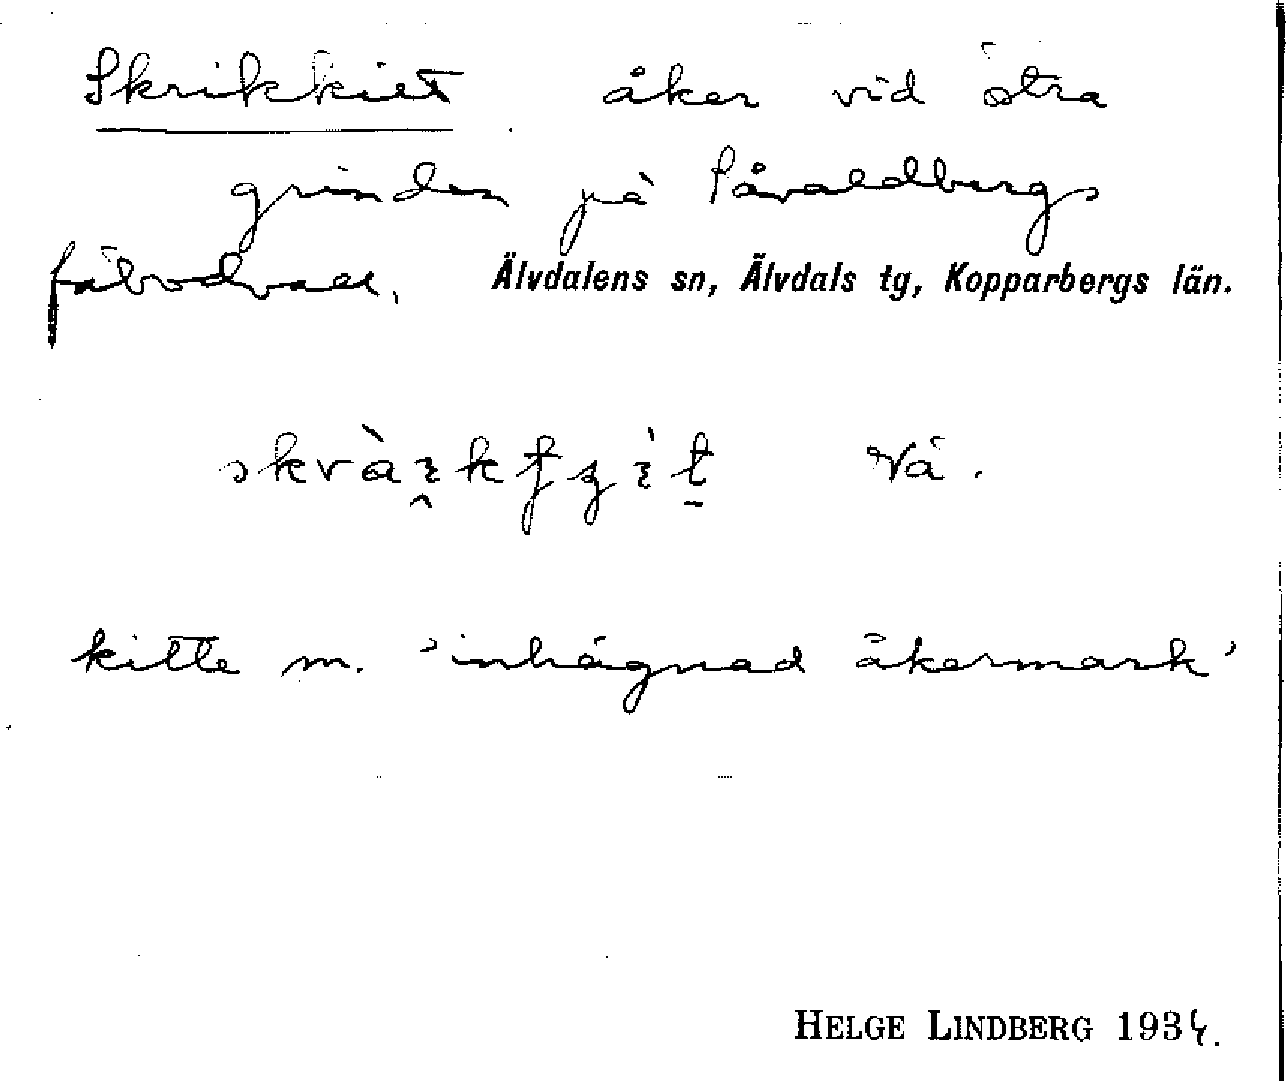 Skrikkiet åker vid östra
grinden på Påvaldbergs
fäbodvall. Älvdalens sn, Älvdals tg, Kopparbergs län.
Vå.
kitte m. 'inhägnad åkermark'
HELGE LINDBERG 1934.